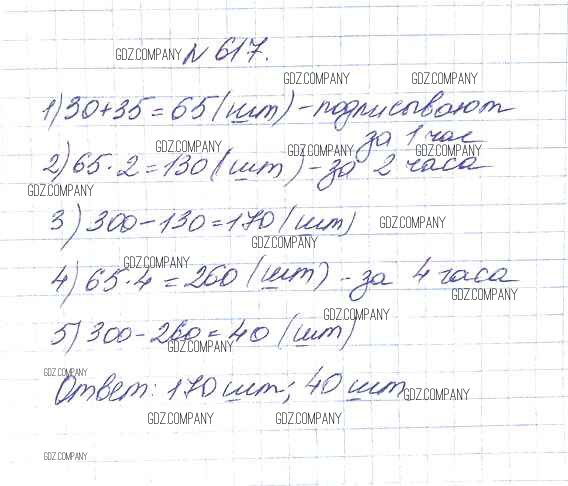 GDZ.COMPANY № 617.
GDZ.COMPANY GDZ.COMPANY
1) 30+35=65(шт) - подписывают
за 1 час
GDZ.COMPANY GDZ.COMPANY GDZ.COMPANY
2) 65·2=130(шт) - за 2 часа
GDZ.COMPANY
3) 300-130=170(шт) GDZ.COMPANY
GDZ.COMPANY
GDZ.COMPANY
4) 65·4=260(шт) - за 4 часа
GDZ.COMPANY
GDZ.COMPANY
5) 300-260=40(шт)
GDZ.COMPANY
GDZ.COMPANY
Ответ: 170шт; 40шт
GDZ.COMPANY
GDZ.COMPANY GDZ.COMPANY
GDZ.COMPANY